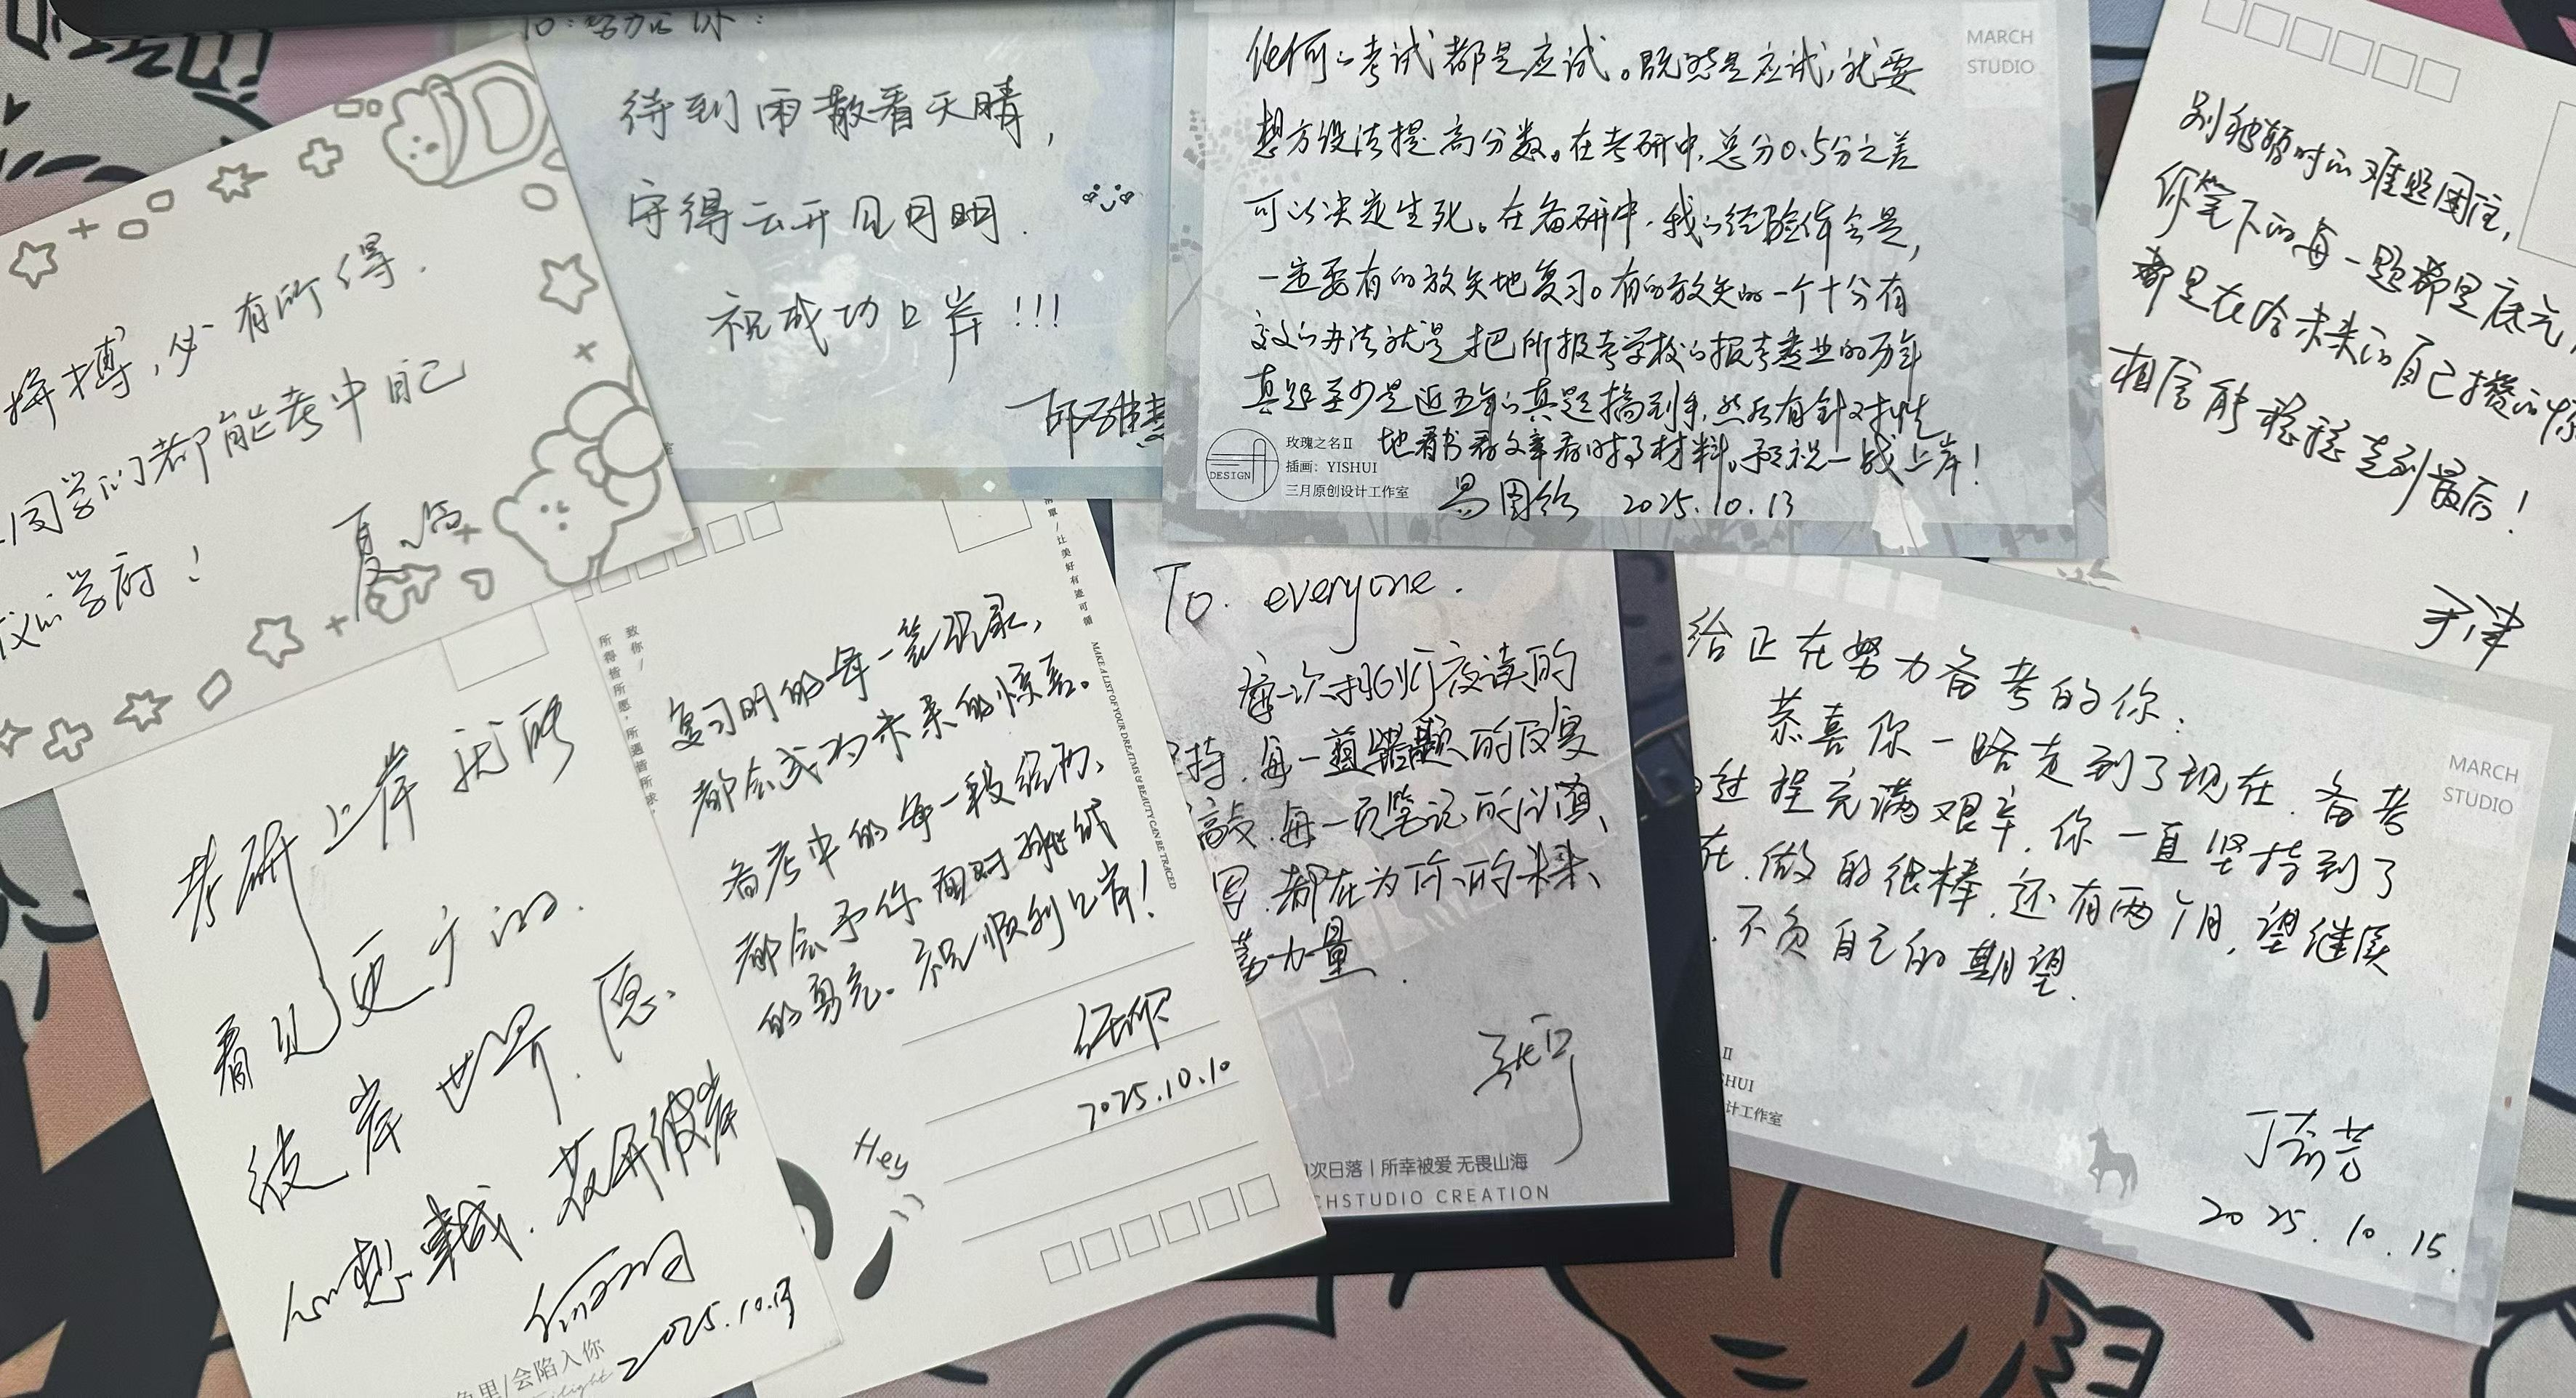 拼搏,必有所得.
同学们都能考中自己
学府!
夏
待到雨散看天晴,
守得云开见月明.
祝成功上岸!!!
任何的考试都是应试。既然是应试,就要
想方设法提高分数。在考研中,总分0.5分之差
可以决定生死。在备研中,我的经验体会是,
一定要有的放矢地复习。有的放矢的一个十分有
效的办法就是把所报考学校的报考专业的历年
真题至少是近五年的真题搞到手,然后有针对性
地看书看文章看时事材料。预祝一战上岸!
2025.10.13
MARCH
STUDIO
DESIGN
玫瑰之名II
插画:YISHUI
三月原创设计工作室
别被暂时的难题困住,
你笔下的每一题都是底气,
都是在给未来的自己攒的惊
相信能稳稳走到最后!
考研上岸就能
看见更广的
彼岸世界.愿
心想事成.花开彼岸
2025.10.13
鱼里/会陷入你
致你/
所得皆所愿,所遇皆所求,
复习时的每一笔记录,
都会成为未来的惊喜。
备考中的每一段经历,
都会予你面对挑战
的勇气。祝顺利上岸!
2025.10.10
Hey
单/让美好有迹可循
MAKE A LIST OF YOUR DREAMS & BEAUTY CAN BE TRACED
To. everyone.
每一次挑灯夜读的
坚持.每一道错题的反复
敲.每一页笔记的认真
写.都在为你的未来
蓄力量.
次日落|所幸被爱 无畏山海
CHSTUDIO CREATION
给正在努力备考的你:
恭喜你一路走到了现在.备考
的过程充满艰辛.你一直坚持到了
在.做的很棒.还有两个月,望继续
.不负自己的期望.
丁
2025.10.15.
MARCH
STUDIO
II
SHUI
计工作室